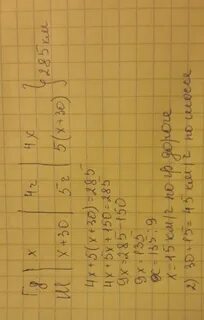 Гд | x | 4ч | 4x } 285 км
Ш | x+30 | 5ч | 5(x+30)
4x+5(x+30)=285
4x+5x+150=285
9x=285-150
9x=135
x=135:9
x=15 км/ч по гр дороге
2) 30+15=45 км/ч по шоссе